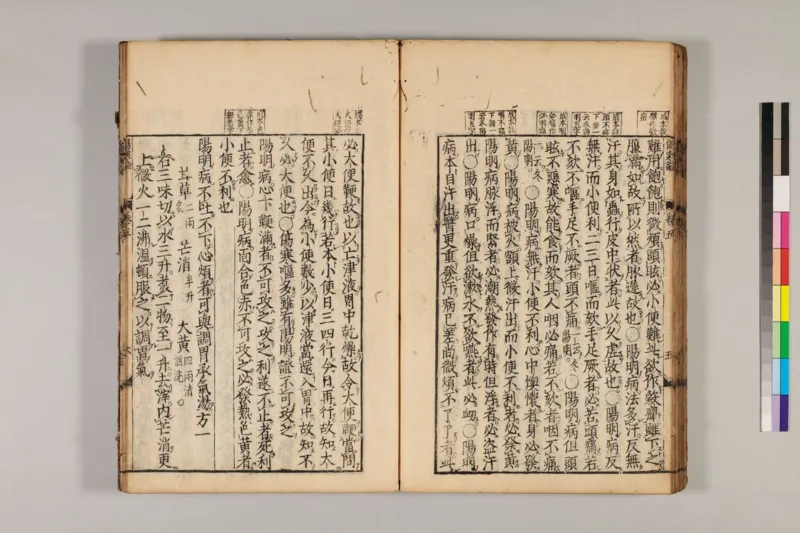 難用飽飽則微煩頭眩必小便難此欲作穀癉雖下之
腹滿如故所以然者脉遲故也○陽明病法多汗反無
汗其身如蟲行皮中狀者此以久虛故也○陽明病反
無汗而小便利二三日嘔而欬手足厥者必苦頭痛若
不欬不嘔手足不厥者頭不痛一云冬陽明○陽明病但頭
眩不惡寒故能食而欬其人咽必痛若不欬者咽不痛
一云冬陽明○陽明病無汗小便不利心中懊憹者身必發
黃○陽明病被火額上微汗出而小便不利者必發黃
陽明病脉浮而緊者必潮熱發作有時但浮者必盗汗
出○陽明病口燥但欲漱水不欲嚥者此必衄○陽明
病本自汗出醫更重發汗病已差尚微煩不了了者此
必大便鞕故也以亡津液胃中乾燥故令大便鞕當問
其小便日幾行若本小便日三四行今日再行故知大
便不久出今為小便數少以津液當還入胃中故知不
久必大便也○傷寒嘔多雖有陽明證不可攻之
陽明病心下鞕滿者不可攻之攻之利遂不止者死利
止者愈○陽明病面合色赤不可攻之必發熱色黃者
小便不利也
陽明病不吐不下心煩者可與調胃承氣湯方一
甘草二兩炙 芒消半升 大黃四兩清酒洗
右三味切以水三升煑二物至一升去滓內芒消更
上微火一二沸溫頓服之以調胃氣